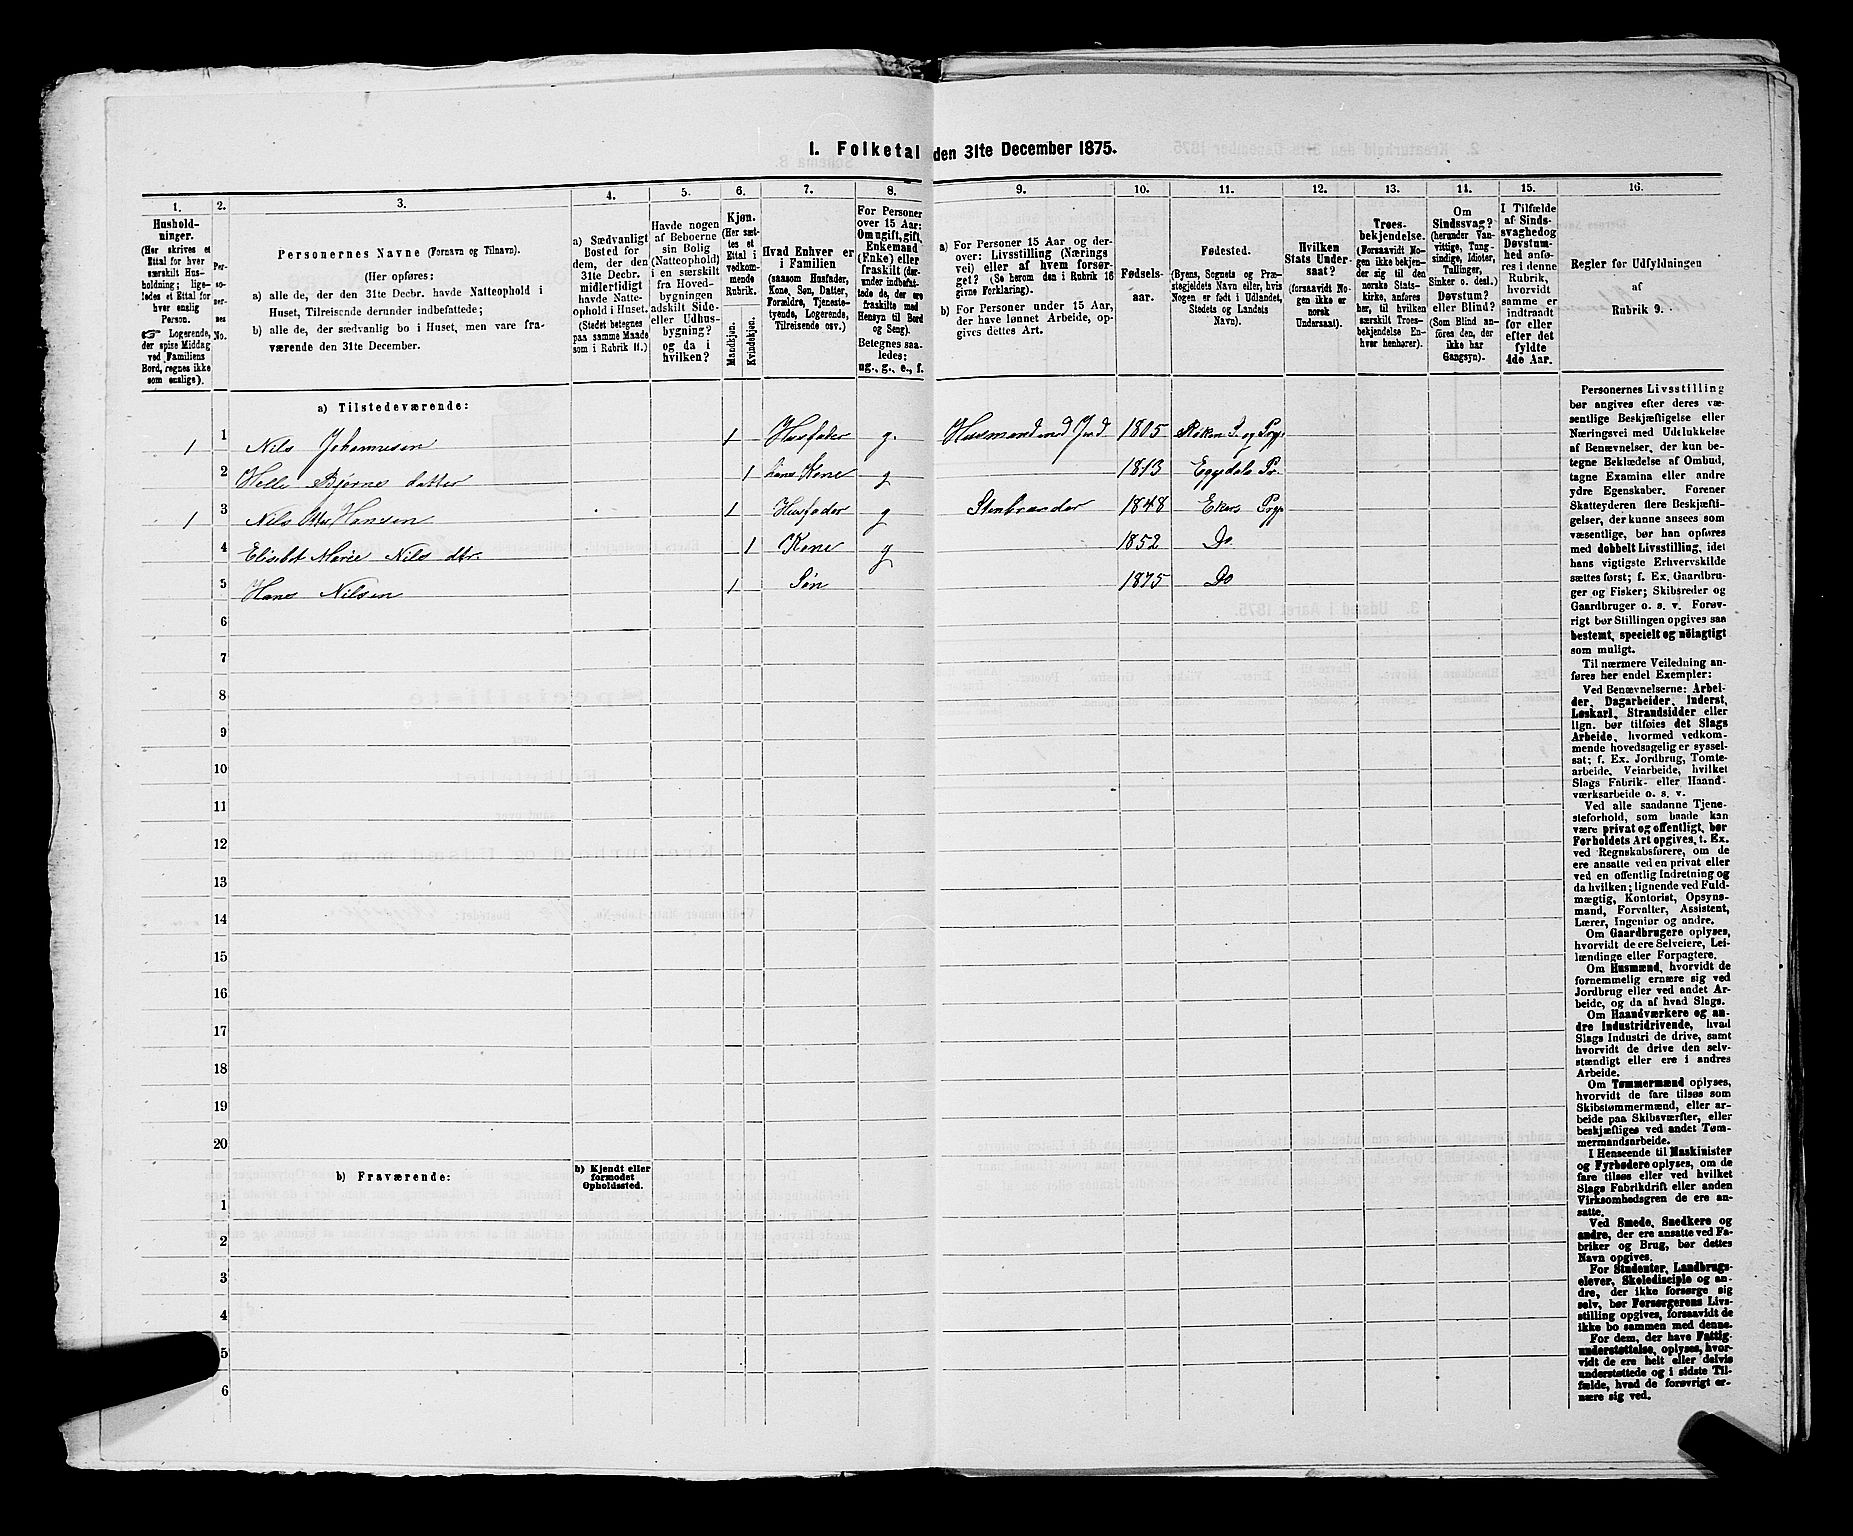 1. Folketal den 31te December 1875.
1. 2. 3. 4. 5. 6. 7. 8. 9. 10. 11. 12. 13. 14. 15. 16.
Hushold-
ninger.
(Her skrives et
Ettal for hver
særskilt Hus-
holdning; lige-
ledes et Ettal for
hver enslig
Person.
☞ Logerende,
der spise Middag
ved Familiens
Bord, regnes ikke
som enslige).
Per-
so-
ner-
nes
No.
Personernes Navne (Fornavn og Tilnavn).
(Her opføres:
a) alle de, der den 31te Decbr. havde Natteophold i
Huset, Tilreisende derunder indbefattede;
b) alle de, der sædvanlig bo i Huset, men vare fra-
værende den 31te December.
a) Sædvanligt
Bosted for
dem, der den
31te Decbr.
midlertidigt
havde Natte-
ophold i Huset.
(Stedet betegnes
paa samme Maade
som i Rubrik 11.)
Havde nogen
af Beboerne
sin Bolig
(Natteophold)
i en særskilt
fra Hoved-
bygningen
adskilt Side-
eller Udhus-
bygning?
og da i
hvilken?
Kjøn.
(Her sæt-
tes et
Ettal i
vedkom-
mende
Rubrik.
Mandkjøn.
Kvindekjøn.
Hvad Enhver er
i Familien
(saasom Husfader,
Kone, Søn, Datter,
Forældre, Tjeneste-
tyende, Logerende,
Tilreisende osv.)
For Personer
over 15 Aar:
Om ugift, gift,
Enkemand
(Enke) eller
fraskilt (der-
under indbefat-
tede de, der ere
fraskilte med
Hensyn til Bord
og Seng).
Betegnes saa-
ledes:
ug., g., e., f.
a) For Personer 15 Aar og der-
over: Livsstilling (Nærings-
vei) eller af hvem forsør-
get? (Se herom den i Rubrik 16
givne Forklaring).
b) For Personer under 15 Aar,
der have lønnet Arbeide, op-
gives dettes Art.
Fødsels-
aar.
Fødested.
(Byens, Sognets og Præ-
stegjeldets Navn eller, hvis
Nogen er født i Udlandet,
Stedets og Landets
Navn).
Hvilken
Stats Under-
saat?
(forsaavidt No-
gen ikke er
norsk
Undersaat).
Troes-
bekjendelse.
(Forsaavidt No-
gen ikke bekjen-
der sig til den
norske Stats-
kirke, anføres
her, til hvilken
særskilt Troes-
bekjendelse En-
hver henhører).
Om
Sindssvag?
(herunder Van-
vittige, Tung-
sindige, Idioter,
Tullinger,
Sinker o. desl.)
Døvstum?
eller Blind?
(Som Blind an-
føres den, der
ikke har
Gangsyn).
I Tilfælde
af Sinds-
svaghed og
Døvstum-
hed anfø-
res i denne
Rubrik,
hvorvidt
samme er
indtraadt
før eller
efter det
fyldte
4de Aar.
Regler for Udfyldningen
af
Rubrik 9.
a) Tilstedeværende:
1 1 Nils Johannesen 1 Husfader g. Husmand med Jord 1805 Røken S. og Prgj.
2 Helle Bjørns datter 1 hans Kone g 1813 Eggedals Pr.
1 3 Nils Hansen 1 Husfader g Stenbrænder 1848 Ekers Prgj.
4 Elisebet Marie Nils dtr. 1 Kone g 1852 Do
5 Hans Nilsen 1 Søn 1875 Do
6
7
8
9
10
11
12
13
14
15
16
17
18
19
20
b) Fraværende:
b) Kjendt eller
formodet
Opholdssted.
1
2
3
4
5
6
Personernes Livsstilling
bør angives efter deres væ-
sentlige Beskjæftigelse eller
Næringsvei med Udelukkelse
af Benævnelser, der kun be-
tegne Beklædelse af Ombud,
tagne Examina eller andre
ydre Egenskaber. Forener
Skatteyderen flere Beskjæfti-
gelser, der kunne ansees som
væsentlige, bør han opføres
med dobbelt Livsstilling, idet
hans vigtigste Erhvervskilde
sættes først; f. Ex. Gaardbru-
ger og Fisker; Skibsreder og
Gaardbruger o. s. v. Forøv-
rigt bør Stillingen opgives saa
bestemt, specielt og nöiagtigt
som muligt.
Til nærmere Veiledning an-
føres her endel Exempler:
Ved Benævnelserne: Arbei-
der, Dagarbeider, Inderst,
Løskarl, Strandsidder eller
lign. bør tilføies det Slags
Arbeide, hvormed vedkom-
mende hovedsagelig er syssel-
sat; f. Ex. Jordbrug, Tomte-
arbeide, Veiarbeide, hvilket
Slags Fabrik- eller Haand-
værksarbeide o. s. v.
Ved alle saadanne Tjene-
steforhold, som baade kan
være privat og offentligt, bør
Forholdets Art opgives, t. Ex.
ved Regnskabsførere, om de
ere ansatte ved en privat eller
ved en offentlig Indretning og
da hvilken; lignende ved Fuld-
mægtig, Kontorist, Opsyns-
mand, Forvalter, Assistent,
Lærer, Ingeniør og andre.
Om Gaardbrugere oplyses,
hvorvidt de ere Selveiere, Lei-
lændinge eller Forpagtere.
Om Husmænd, hvorvidt de
fornemmelig ernære sig ved
Jordbrug eller ved andet Ar-
beide, og da af hvad Slags.
Om Haandværkere og an-
dre Industridrivende, hvad
Slags Industri de drive, samt
hvorvidt de drive den selv-
stændigt eller ere i andres
Arbeide.
Om Tømmermænd oplyses,
hvorvidt de fare tilsøs som
Skibstømmermænd, eller ar-
beide paa Skibsværfter, eller
beskjæftiges ved andet Tøm-
mermandsarbeide.
I Henseende til Maskinister
og Fyrbødere oplyses, om de
fare tilsøs eller ved hvilket
Slags Fabrikdrift eller anden
Virksomhedsgren de ere an-
satte.
Ved Smede, Snedkere og
andre, der ere ansatte ved Fa-
briker og Brug, bør dettes
Navn opgives.
For Studenter, Landbrugs-
elever, Skoledisciple og an-
dre, der ikke forsørge sig
selv, bør Forsørgerens Livs-
stilling opgives, forsaavidt de
ikke bo sammen med denne.
For dem, der have Fattig-
understøttelse, oplyses, hvor-
vidt de ere helt eller delvis
understøttede og i sidste Til-
fælde, hvad de forøvrigt er-
nære sig ved.